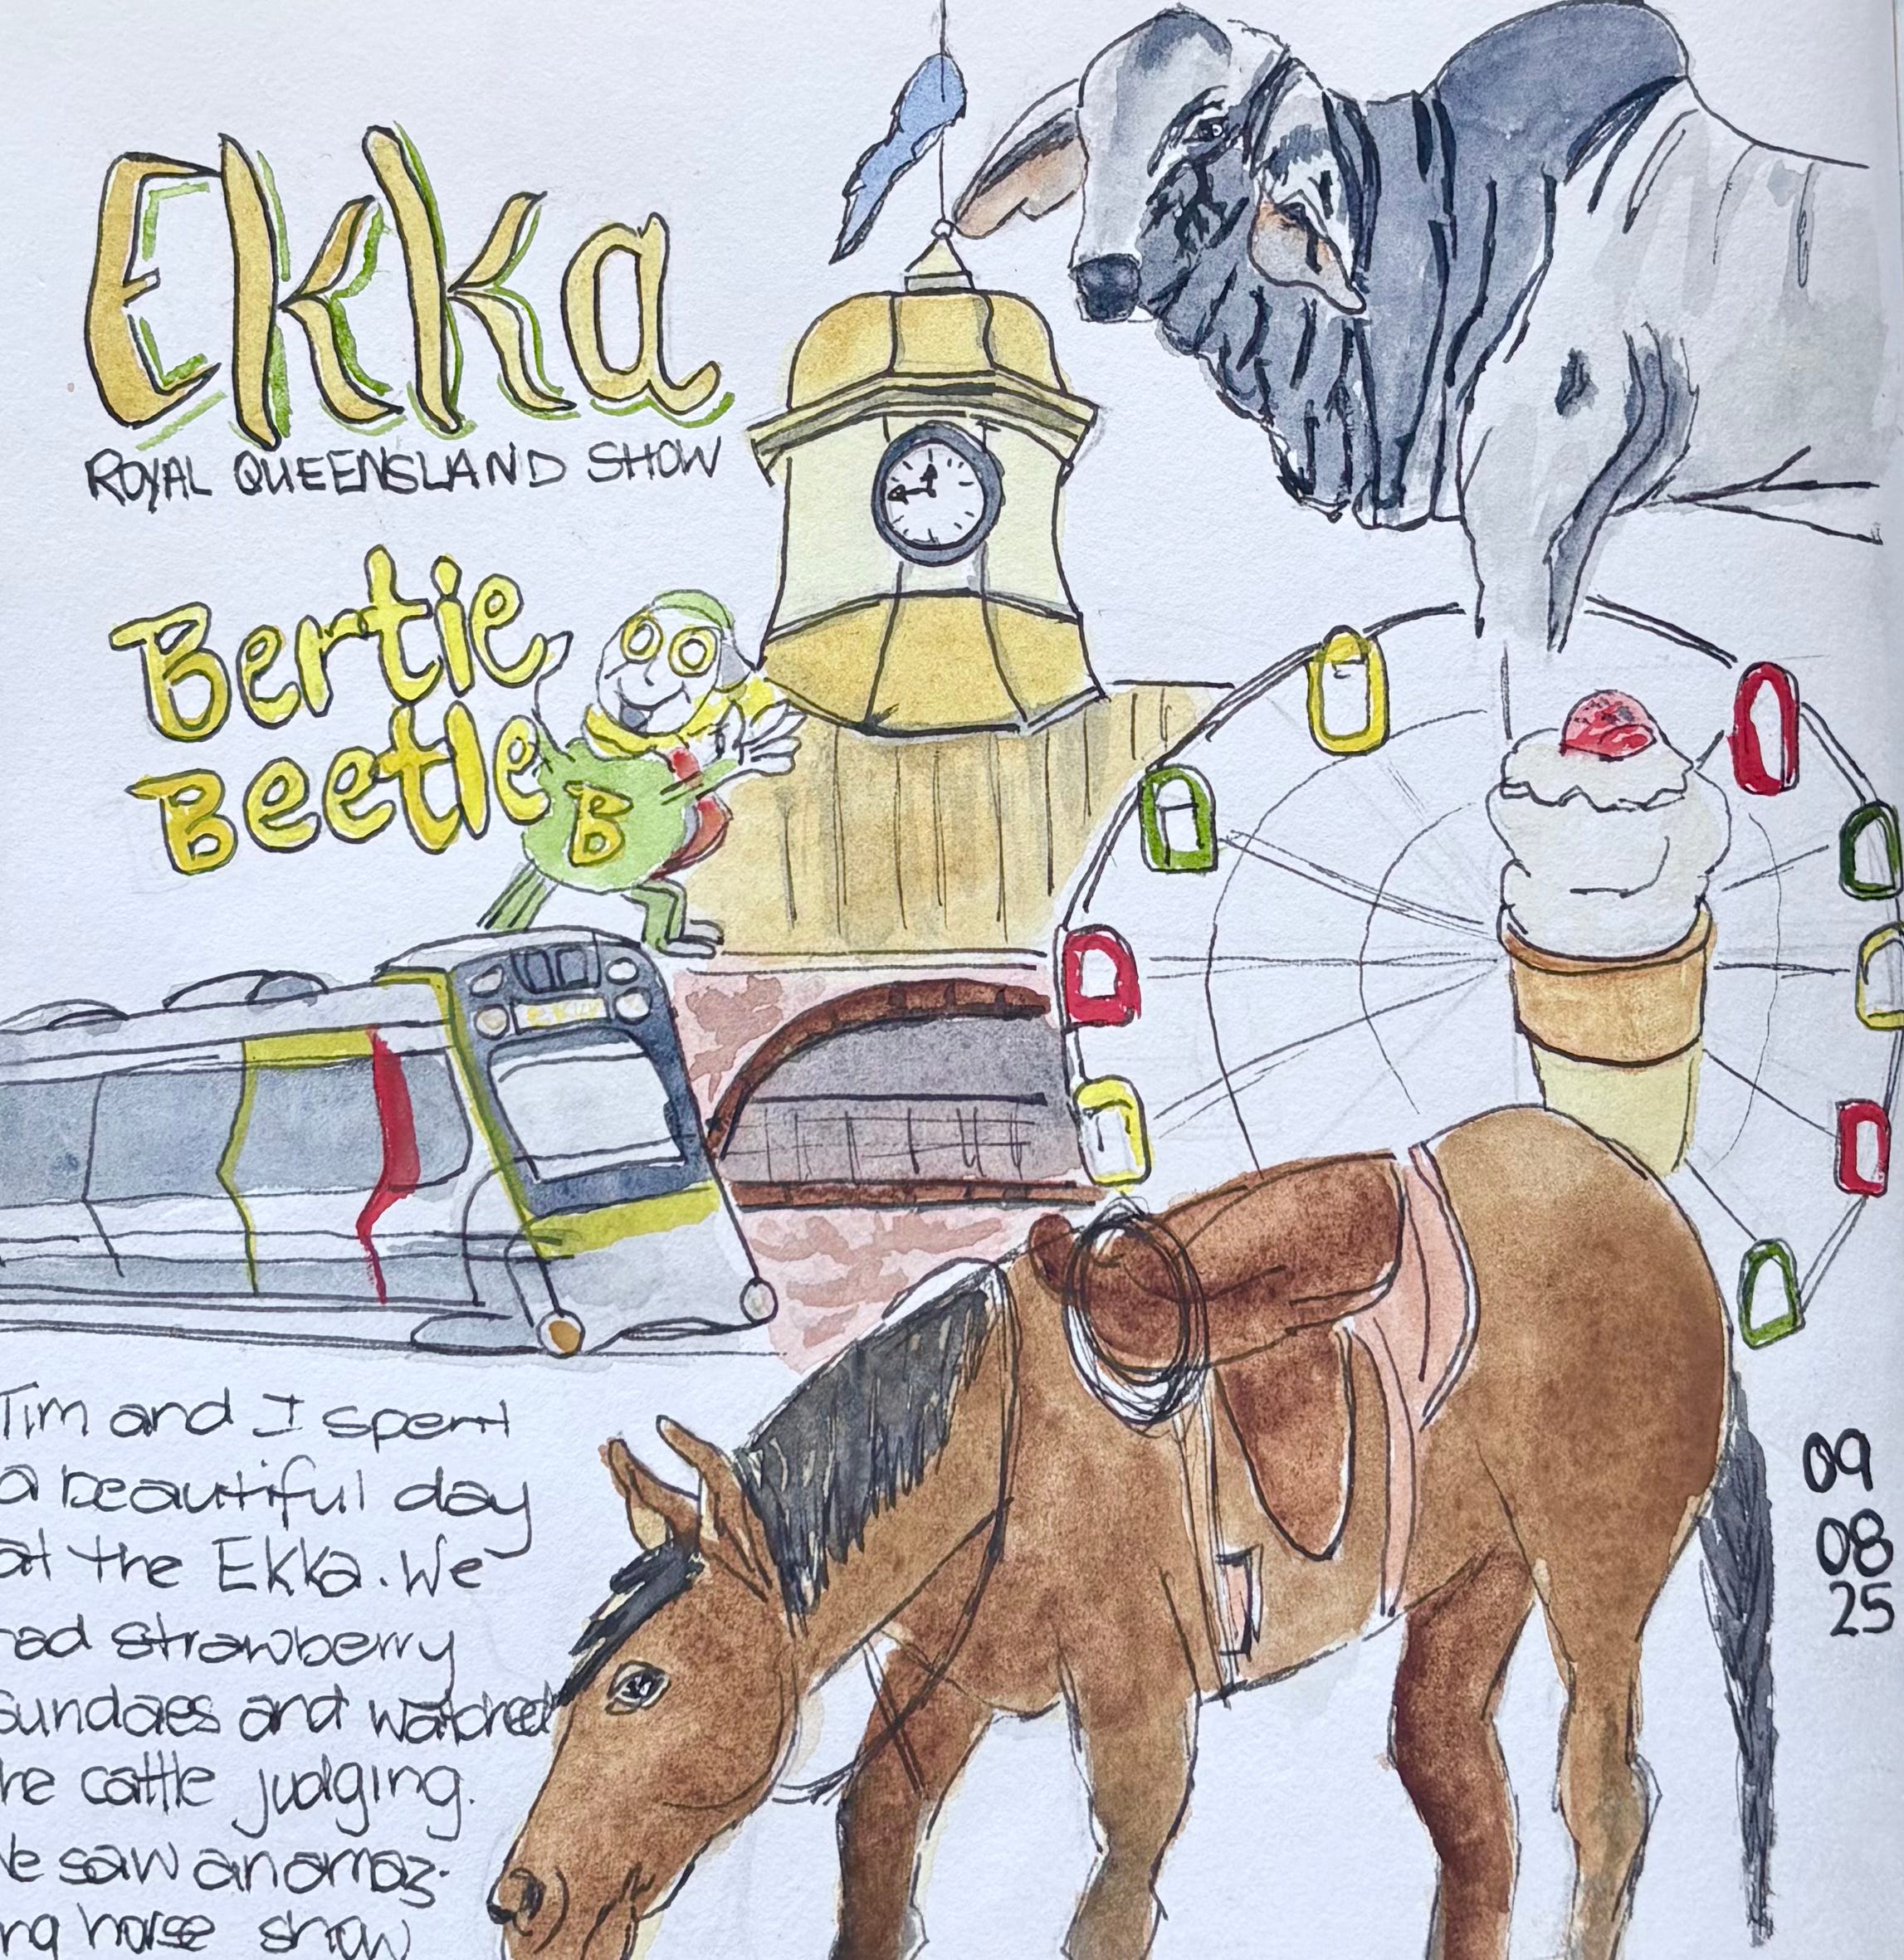 Ekka
ROYAL QUEENSLAND SHOW
Bertie
Beetle
B
Tim and I spent
a beautiful day
at the Ekka. We
had strawberry
sundaes and watched
he cattle judging.
We saw an amaz-
ng horse show
09
08
25